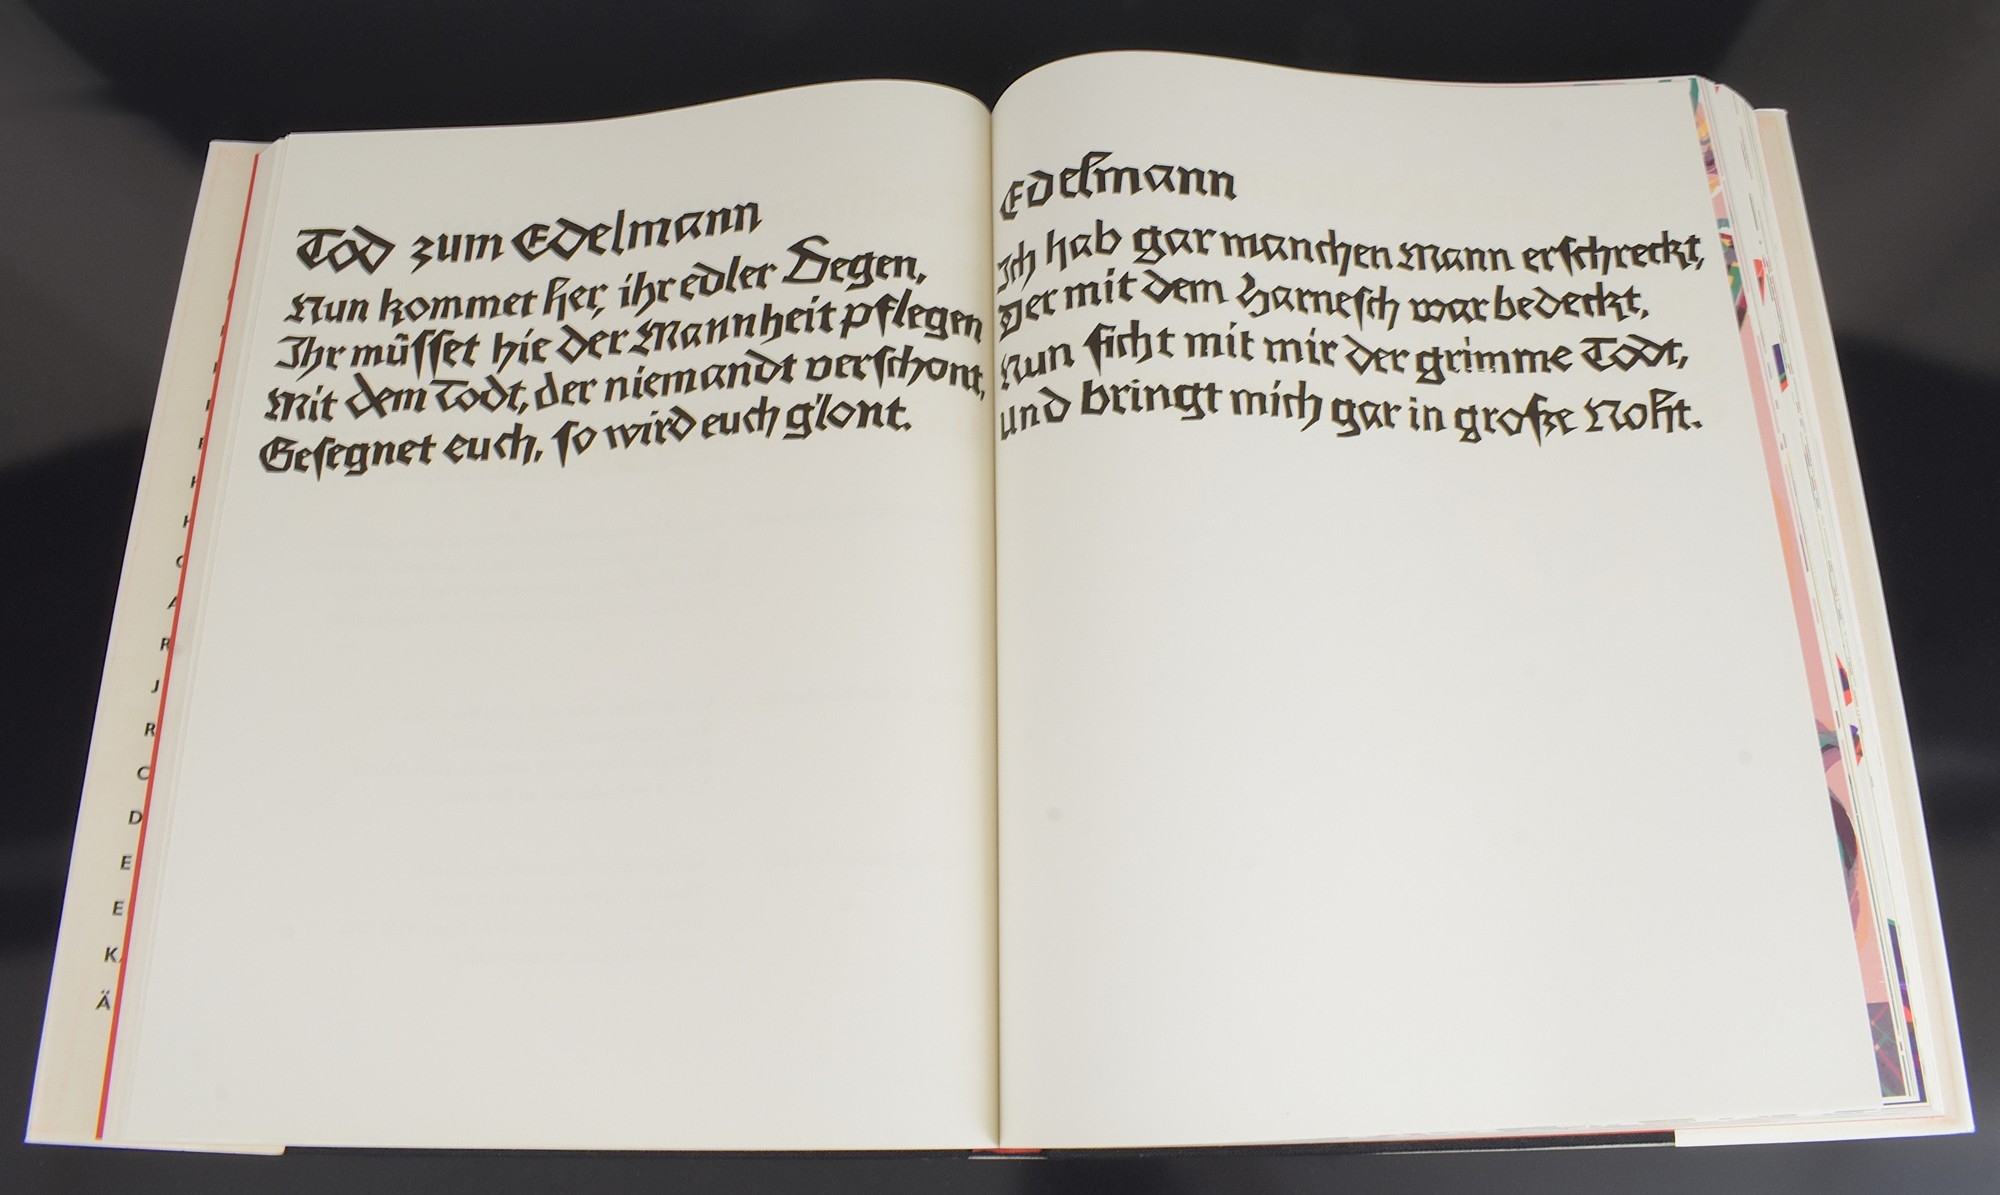 Tod zum Edelmann
Nun kommet her, ihr edler Degen,
Ihr müſſet hie der Mannheit pflegen
Mit dem Todt, der niemandt verſchont,
Geſegnet euch, ſo wird euch g'lont.
Edelmann
Ich hab gar manchen Mann erſchreckt,
Der mit dem Harneſch war bedeckt,
Nun ficht mit mir der grimme Todt,
Und bringt mich gar in große Noht.
H
H
O
A
R
J
R
C
D
E
E
K
Ä